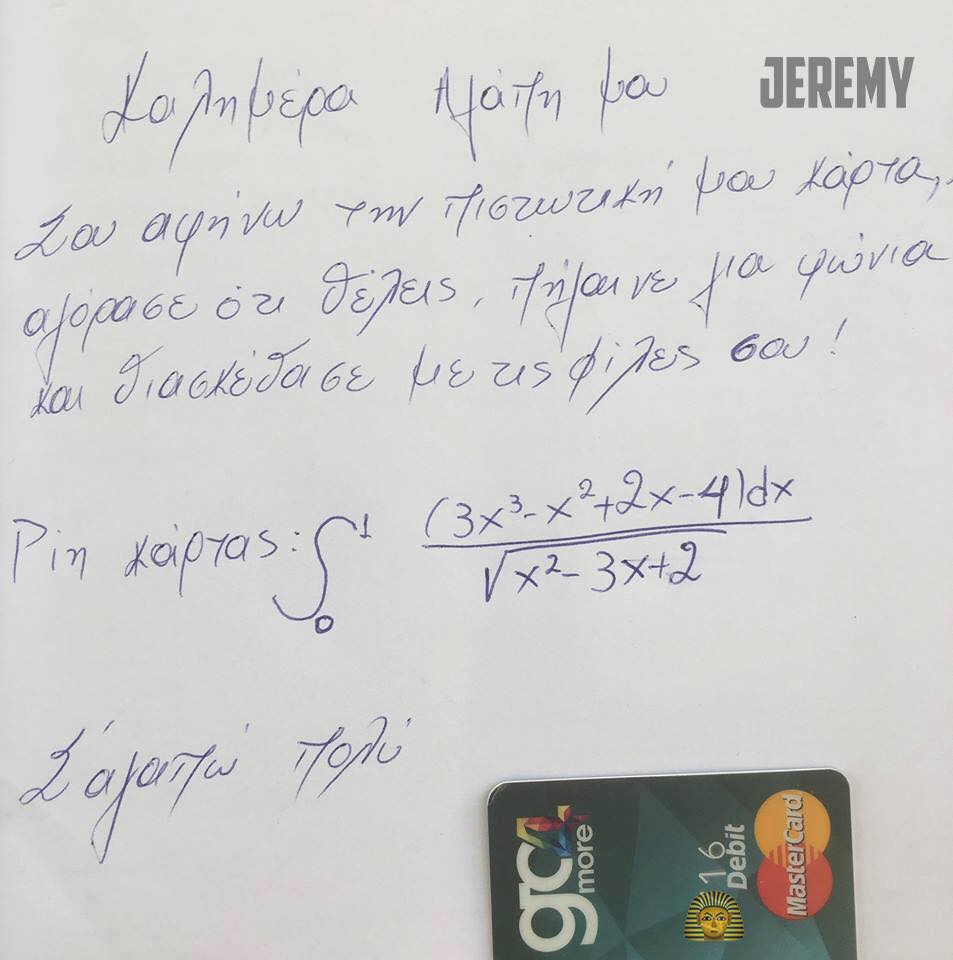 Καλημέρα Αγάπη μου
JEREMY
Σου αφήνω την πιστωτική μου κάρτα,
αγόρασε ότι θέλεις, πήγαινε για ψώνια
και διασκέδασε με τις φίλες σου!
Pin κάρτας: ∫₀¹ (3x³-x²+2x-4)dx / √(x²-3x+2)
Σ'αγαπώ πολύ
gr4
more
16
Debit
MasterCard